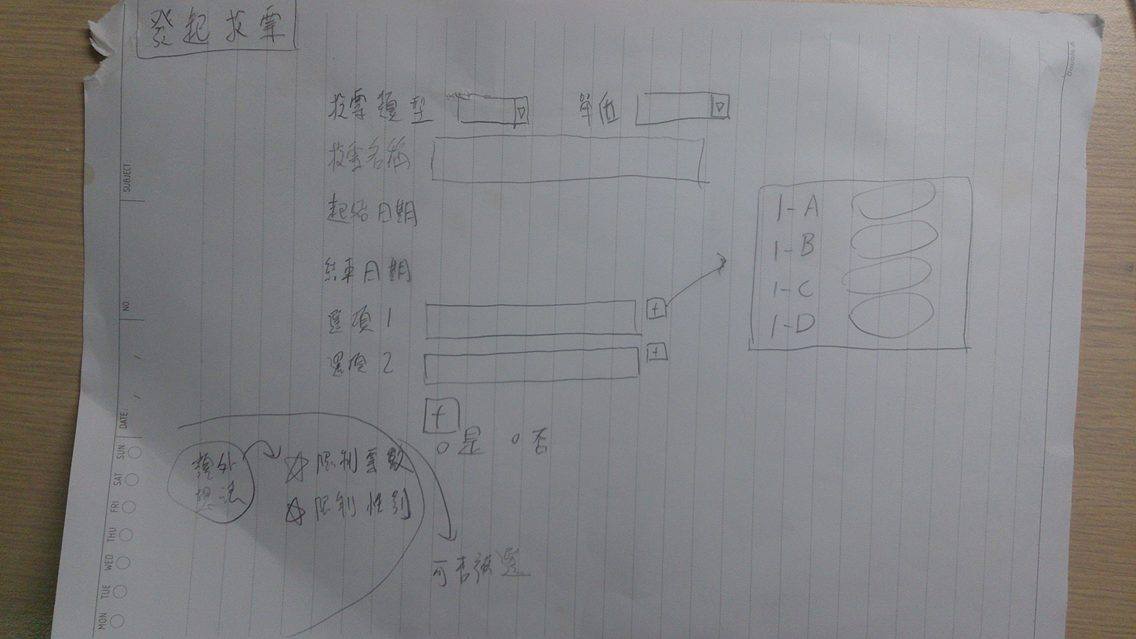 發起投票
投票類型 單位
投票名稱
起始日期
結束日期
選項1 +
選項2 +
+
○是 ○否
1-A
1-B
1-C
1-D
額外
想法
☆限制票數
☆限制性別
可否複選
SUBJECT
NO
DATE
SUN
SAT
FRI
THU
WED
TUE
MON